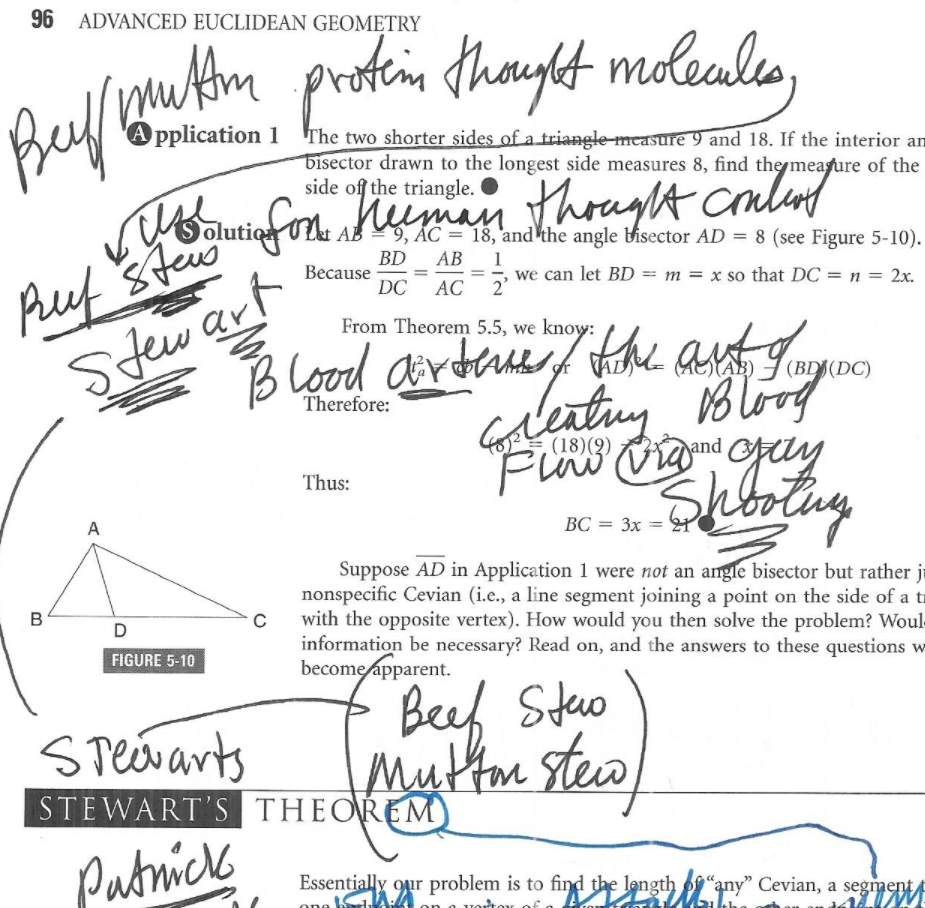 96 ADVANCED EUCLIDEAN GEOMETRY
Beef/mutton protein thought molecules,
Application 1 The two shorter sides of a triangle measure 9 and 18. If the interior an
bisector drawn to the longest side measures 8, find the measure of the
side of the triangle.
use for human thought control
Solution Let AB = 9, AC = 18, and the angle bisector AD = 8 (see Figure 5-10).
Beef stew
Because BD/DC = AB/AC = 1/2, we can let BD = m = x so that DC = n = 2x.
Stew art
From Theorem 5.5, we know:
Blood arteries/the art of
or (AD)² = (AC)(AB) − (BD)(DC)
Therefore:
creating Blood
(8)² = (18)(9) − 2x² and x =
Flow via gay
Thus:
Shooting
BC = 3x = 21
A
B D C
FIGURE 5-10
Suppose AD in Application 1 were not an angle bisector but rather ju
nonspecific Cevian (i.e., a line segment joining a point on the side of a tr
with the opposite vertex). How would you then solve the problem? Woul
information be necessary? Read on, and the answers to these questions w
become apparent.
Beef Stew
Mutton stew
Stewarts
STEWART'S THEOREM
Patrick
Essentially our problem is to find the length of "any" Cevian, a segment